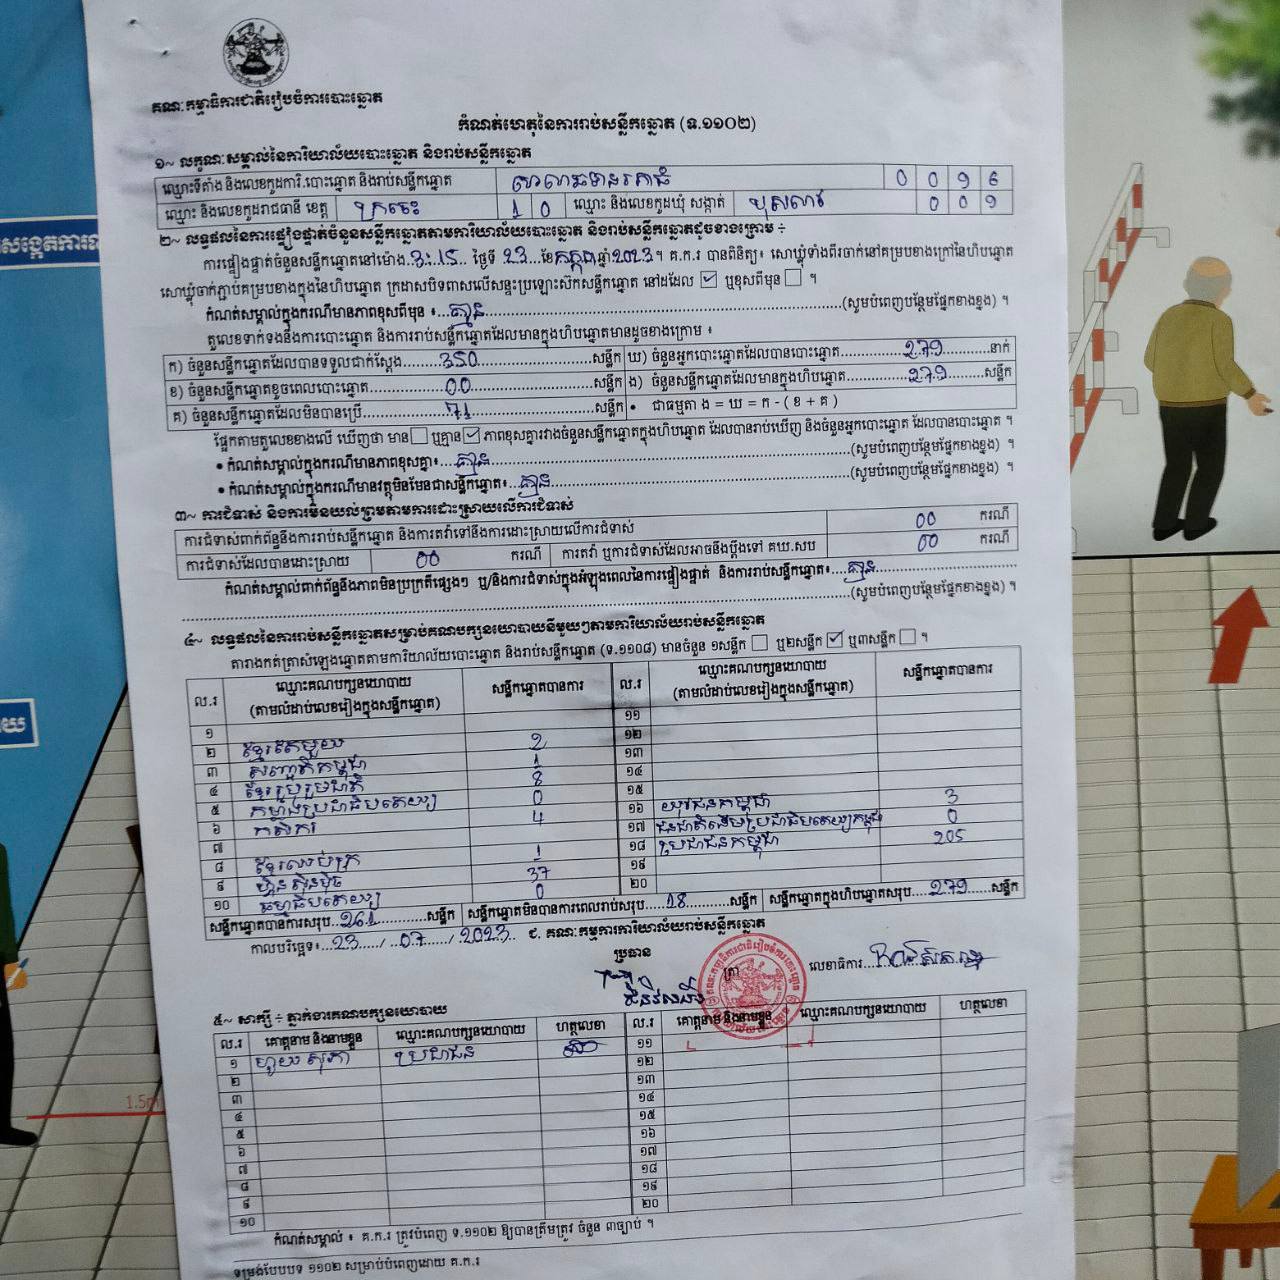 គណៈកម្មាធិការជាតិរៀបចំការបោះឆ្នោត
កំណត់ហេតុនៃការរាប់សន្លឹកឆ្នោត (ទ.១១០២)
១~ លក្ខណៈសម្គាល់នៃការិយាល័យបោះឆ្នោត និងរាប់សន្លឹកឆ្នោត
ឈ្មោះទីតាំង និងលេខកូដការិ.បោះឆ្នោត និងរាប់សន្លឹកឆ្នោត
ឈ្មោះ និងលេខកូដរាជធានី ខេត្ត ក្រចេះ 1 0 ឈ្មោះ និងលេខកូដឃុំ សង្កាត់ ឃុសលាវ
២~ លទ្ធផលនៃការផ្ទៀងផ្ទាត់ចំនួនសន្លឹកឆ្នោតតាមការិយាល័យបោះឆ្នោត និងរាប់សន្លឹកឆ្នោតដូចខាងក្រោម ÷
ការផ្ទៀងផ្ទាត់ចំនួនសន្លឹកឆ្នោតនៅម៉ោង 3:15 ថ្ងៃទី 23 ខែ កក្កដា ឆ្នាំ 2023។ គ.ក.រ បានពិនិត្យ៖ សោឃ្លុំទាំងពីរចាក់នៅគម្របខាងក្រៅនៃហិបឆ្នោត
សោឃ្លុំចាក់ភ្ជាប់គម្របខាងក្នុងនៃហិបឆ្នោត ក្រដាសបិទពាសលើសន្ទះប្រឡោះស៊កសន្លឹកឆ្នោត នៅដដែល ☑ ឬខុសពីមុន ☐ ។
កំណត់សម្គាល់ក្នុងករណីមានភាពខុសពីមុន ៖ គ្មាន (សូមបំពេញបន្ថែមផ្នែកខាងខ្នង) ។
តួលេខទាក់ទងនឹងការបោះឆ្នោត និងការរាប់សន្លឹកឆ្នោតដែលមានក្នុងហិបឆ្នោតមានដូចខាងក្រោម ៖
ក) ចំនួនសន្លឹកឆ្នោតដែលបានទទួលជាក់ស្តែង 350 សន្លឹក ឃ) ចំនួនអ្នកបោះឆ្នោតដែលបានបោះឆ្នោត 279 នាក់
ខ) ចំនួនសន្លឹកឆ្នោតខូចពេលបោះឆ្នោត 00 សន្លឹក ង) ចំនួនសន្លឹកឆ្នោតដែលមានក្នុងហិបឆ្នោត 279 សន្លឹក
គ) ចំនួនសន្លឹកឆ្នោតដែលមិនបានប្រើ 71 សន្លឹក • ជាធម្មតា ង = ឃ = ក - ( ខ + គ )
ផ្អែកតាមតួលេខខាងលើ ឃើញថា មាន ☐ ឬគ្មាន ☑ ភាពខុសគ្នារវាងចំនួនសន្លឹកឆ្នោតក្នុងហិបឆ្នោត ដែលបានរាប់ឃើញ និងចំនួនអ្នកបោះឆ្នោត ដែលបានបោះឆ្នោត ។
• កំណត់សម្គាល់ក្នុងករណីមានភាពខុសគ្នា៖ គ្មាន (សូមបំពេញបន្ថែមផ្នែកខាងខ្នង) ។
• កំណត់សម្គាល់ក្នុងករណីមានវត្ថុមិនមែនជាសន្លឹកឆ្នោត៖ គ្មាន (សូមបំពេញបន្ថែមផ្នែកខាងខ្នង) ។
៣~ ការជំទាស់ និងការមិនយល់ព្រមតាមការដោះស្រាយលើការជំទាស់
ការជំទាស់ពាក់ព័ន្ធនឹងការរាប់សន្លឹកឆ្នោត និងការតវ៉ាទៅនឹងការដោះស្រាយលើការជំទាស់ 00 ករណី
ការជំទាស់ដែលបានដោះស្រាយ 00 ករណី ការតវ៉ា ឬការជំទាស់ដែលអាចនឹងប្តឹងទៅ គឃ.សប 00 ករណី
កំណត់សម្គាល់ពាក់ព័ន្ធនឹងភាពមិនប្រក្រតីផ្សេងៗ ឬ/និងការជំទាស់ក្នុងអំឡុងពេលនៃការផ្ទៀងផ្ទាត់ និងការរាប់សន្លឹកឆ្នោត៖ គ្មាន
(សូមបំពេញបន្ថែមផ្នែកខាងខ្នង) ។
៤~ លទ្ធផលនៃការរាប់សន្លឹកឆ្នោតសម្រាប់គណបក្សនយោបាយនីមួយៗតាមការិយាល័យរាប់សន្លឹកឆ្នោត
តារាងកត់ត្រាសំឡេងឆ្នោតតាមការិយាល័យបោះឆ្នោត និងរាប់សន្លឹកឆ្នោត (ទ.១១០៨) មានចំនួន ១សន្លឹក ☐ ឬ២សន្លឹក ☑ ឬ៣សន្លឹក ☐ ។
ល.រ ឈ្មោះគណបក្សនយោបាយ (តាមលំដាប់លេខរៀងក្នុងសន្លឹកឆ្នោត) សន្លឹកឆ្នោតបានការ ល.រ ឈ្មោះគណបក្សនយោបាយ (តាមលំដាប់លេខរៀងក្នុងសន្លឹកឆ្នោត) សន្លឹកឆ្នោតបានការ
១ ១១
២ ខ្មែរតែមួយ 2 ១២
៣ សញ្ជាតិកម្ពុជា 1 ១៣
៤ ខ្មែររួបរួមជាតិ 8 ១៤
៥ កម្លាំងប្រជាធិបតេយ្យ 0 ១៥
៦ កសិករ 4 ១៦ យុវជនកម្ពុជា 3
៧ ១៧ ជនជាតិដើមប្រជាធិបតេយ្យកម្ពុជា 0
៨ ខ្មែរឈប់ក្រ 1 ១៨ ប្រជាជនកម្ពុជា 205
៩ ហ៊្វុនស៊ិនប៉ិច 37 ១៩
១០ ធម្មាធិបតេយ្យ 0 ២០
សន្លឹកឆ្នោតបានការសរុប 261 សន្លឹក សន្លឹកឆ្នោតមិនបានការពេលរាប់សរុប 18 សន្លឹក សន្លឹកឆ្នោតក្នុងហិបឆ្នោតសរុប 279 សន្លឹក
កាលបរិច្ឆេទ៖ 23 / 07 / 2023 ជ. គណៈកម្មការការិយាល័យរាប់សន្លឹកឆ្នោត
ប្រធាន ត្រា លេខាធិការ
៥~ សាក្សី ÷ ភ្នាក់ងារគណបក្សនយោបាយ
ល.រ គោត្តនាម និងនាមខ្លួន ឈ្មោះគណបក្សនយោបាយ ហត្ថលេខា ល.រ គោត្តនាម និងនាមខ្លួន ឈ្មោះគណបក្សនយោបាយ ហត្ថលេខា
១ ហួយ សុភា ប្រជាជន ១១
២ ១២
៣ ១៣
៤ ១៤
៥ ១៥
៦ ១៦
៧ ១៧
៨ ១៨
៩ ១៩
១០ ២០
កំណត់សម្គាល់ ៖ គ.ក.រ ត្រូវបំពេញ ទ.១១០២ ឱ្យបានត្រឹមត្រូវ ចំនួន ៣ច្បាប់ ។
ទម្រង់បែបបទ ១១០២ សម្រាប់បំពេញដោយ គ.ក.រ
1.5m